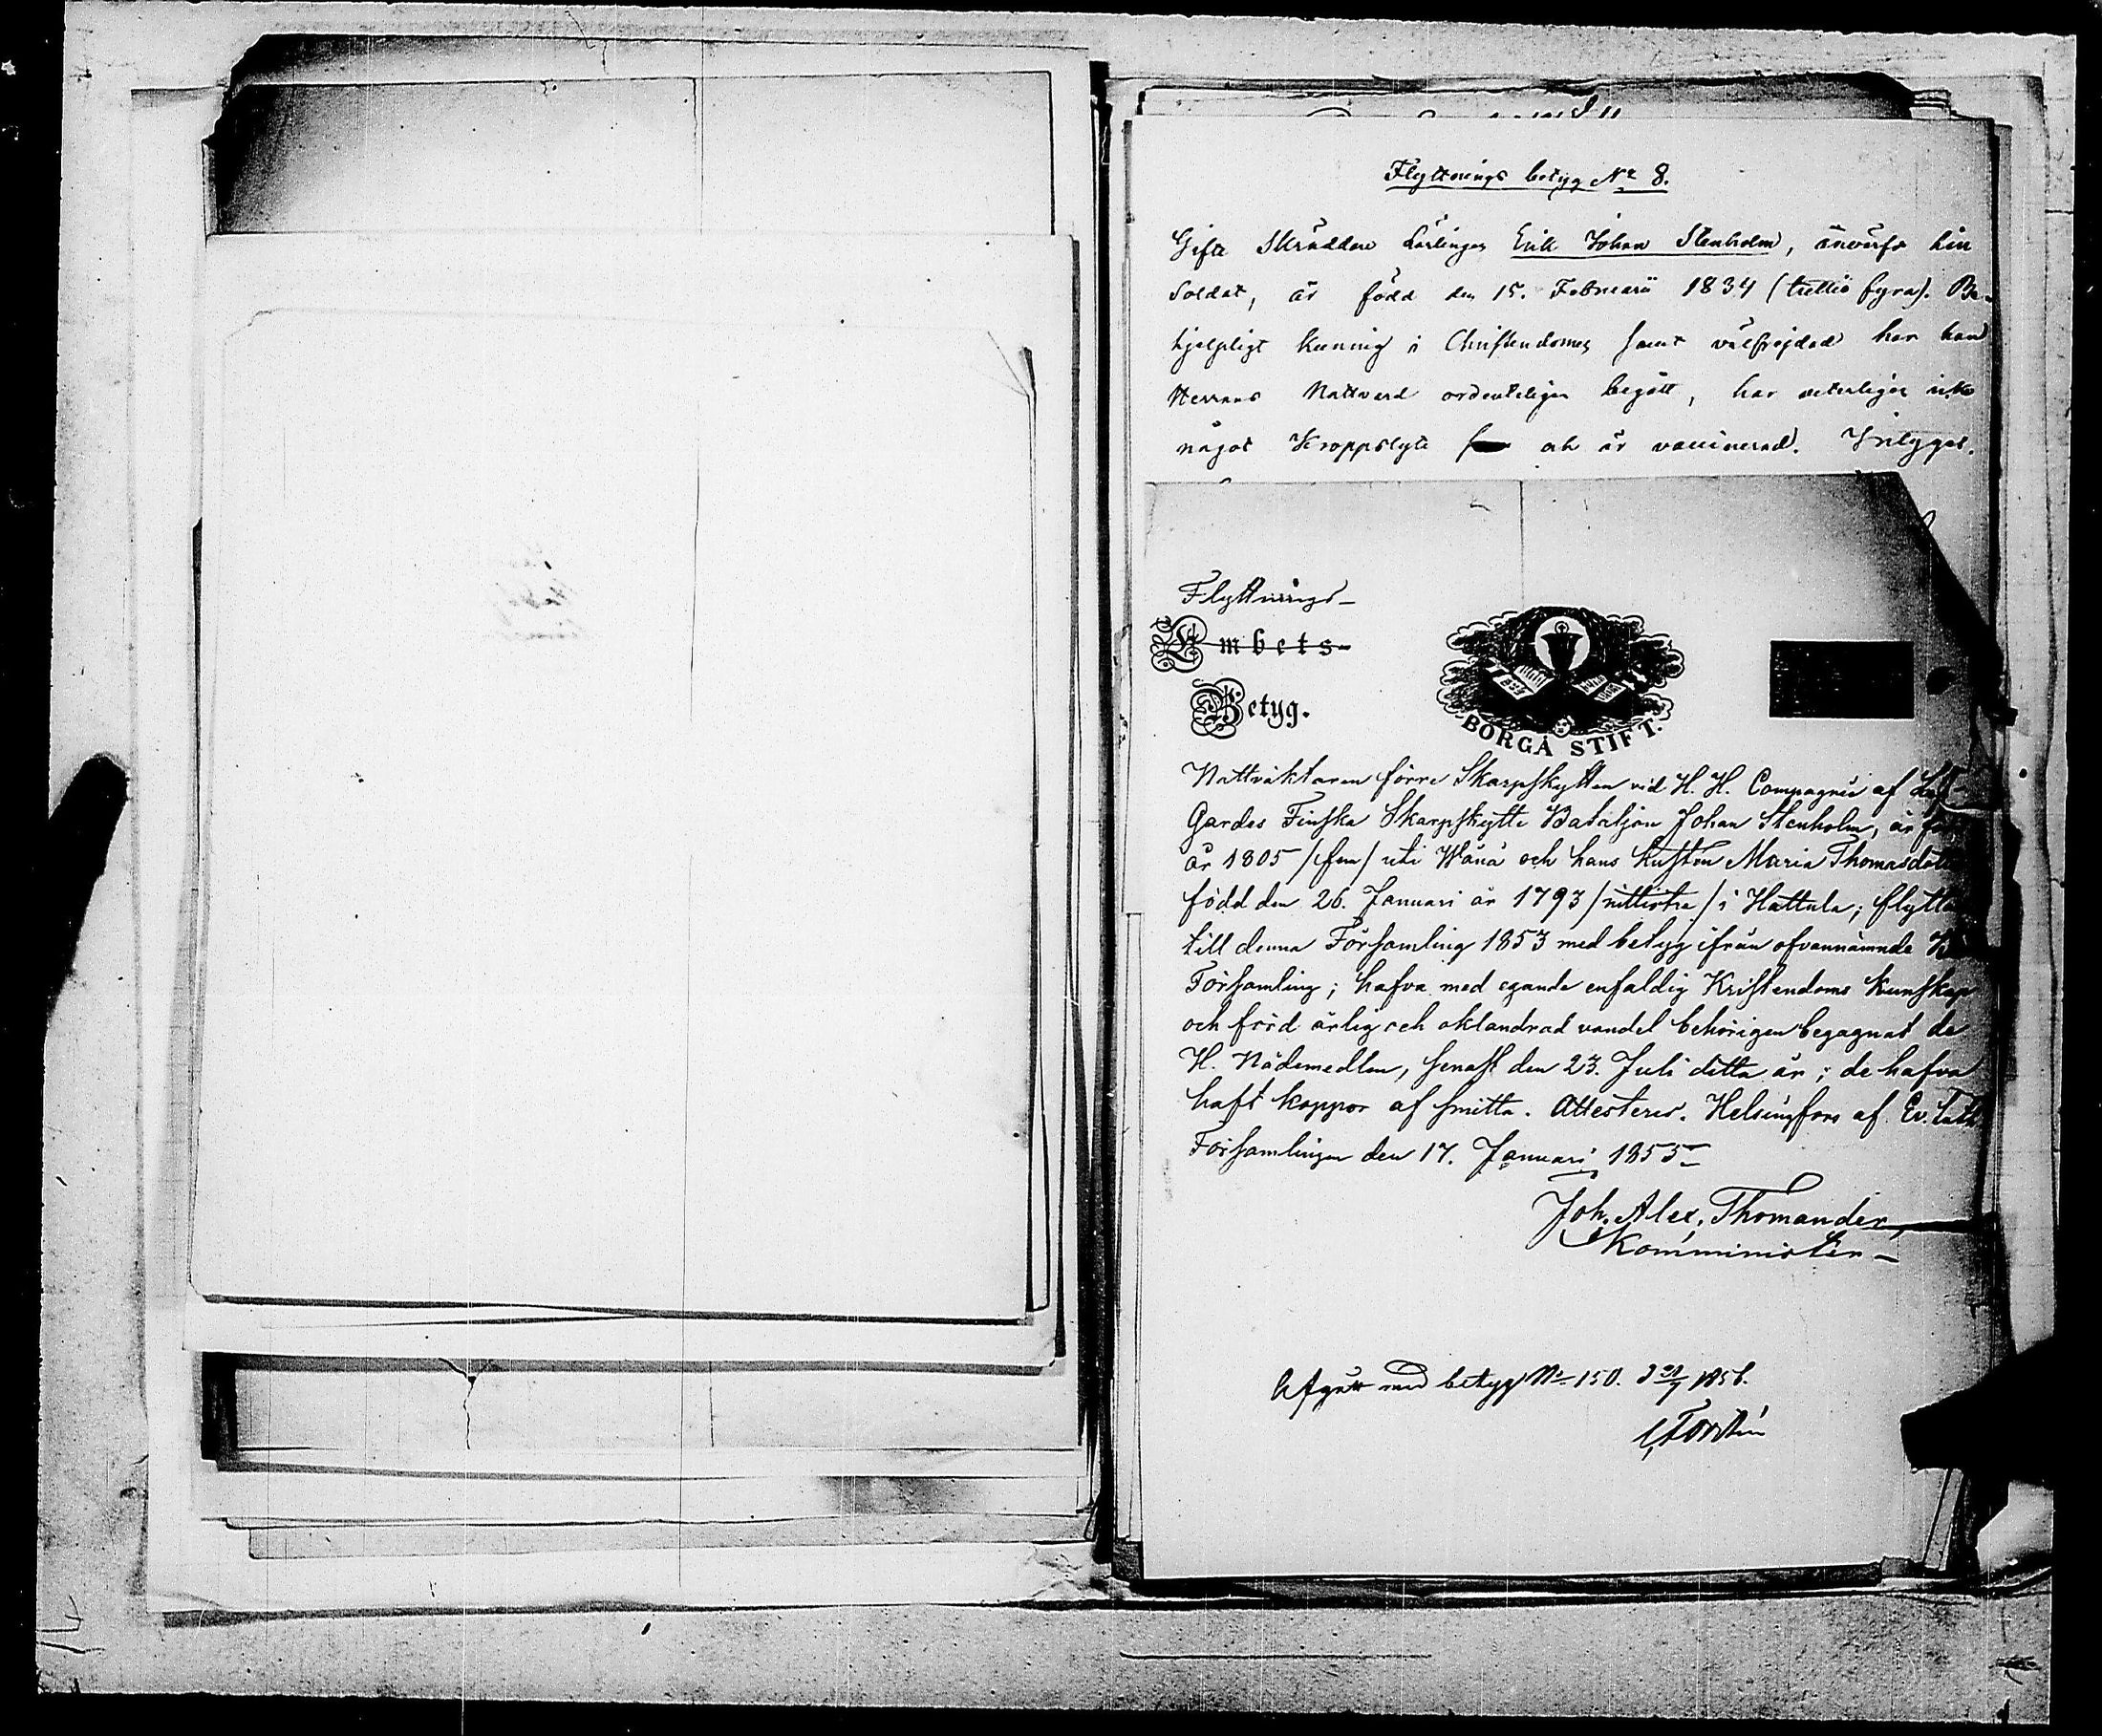 Flyttnings betyg No 8.
Gifte Skräddare Lärlingen Erik Johan Stenholm, änvärfd hin
Soldat, är född den 15. Februarii 1834 (trettio fyra). Be-
hjelpligt kunnig i Christendomen samt välfrejdad har han
Herrans Nattvard ordenteligen begått, har veterligen icke
något Kroppslyte och är vaccinerad. Intygas.
Flyttnings-
Embets-
Betyg.
BORGÅ STIFT.
Nattväktaren förre Skarpskytten vid H. H. Compagnie af Lif-
Gardes Finska Skarpskytte Bataljon Johan Stenholm, är född
år 1805 /fem/ uti Wånå och hans hustru Maria Thomasdotter
född den 26. Januari år 1793 /nittiotre/ i Hattula; flyttade
till denna Församling 1853 med betyg ifrån ofvannämnde
Församling; hafva med egande enfaldig Kristendoms kunskap
och förd ärlig och oklandrad vandel behörigen begagnat de
H. Nådemedlen, senast den 23. Juli detta år; de hafva
haft koppor af smitta. Attesteras. Helsingfors af Ev. Luth.
Församlingen den 17. Januari 1855
Joh. Alex. Thomander,
Komminister
Afgått med betyg No 150. d 21/7 1856.